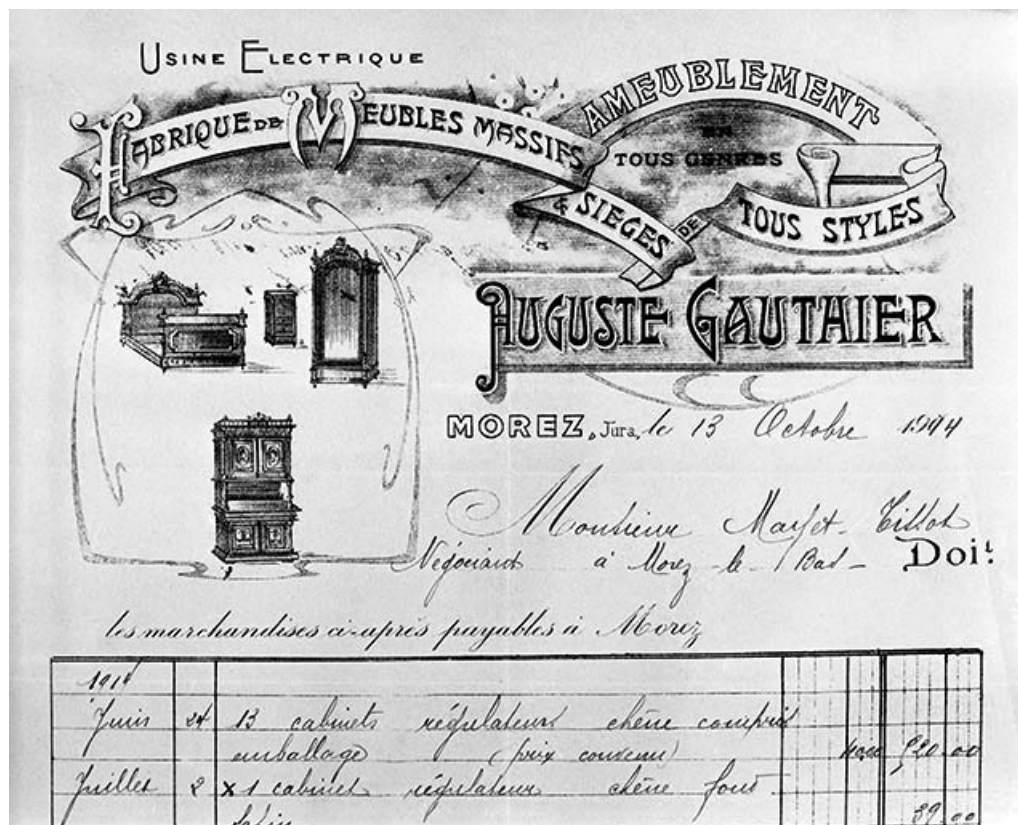 USINE ELECTRIQUE
FABRIQUE DE MEUBLES MASSIFS
AMEUBLEMENT
EN
TOUS GENRES
& SIEGES DE TOUS STYLES
AUGUSTE GAUTHIER
MOREZ, Jura, le 13 Octobre
Monsieur
Négociant à Morez-le-Bas - Doit
les marchandises ci-après payables à Morez
1914
Juin 24 13 cabinets régulateurs chêne compris
emballage (prix convenu) 40.00 520.00
Juillet 2 x 1 cabinet régulateur chêne
39.00